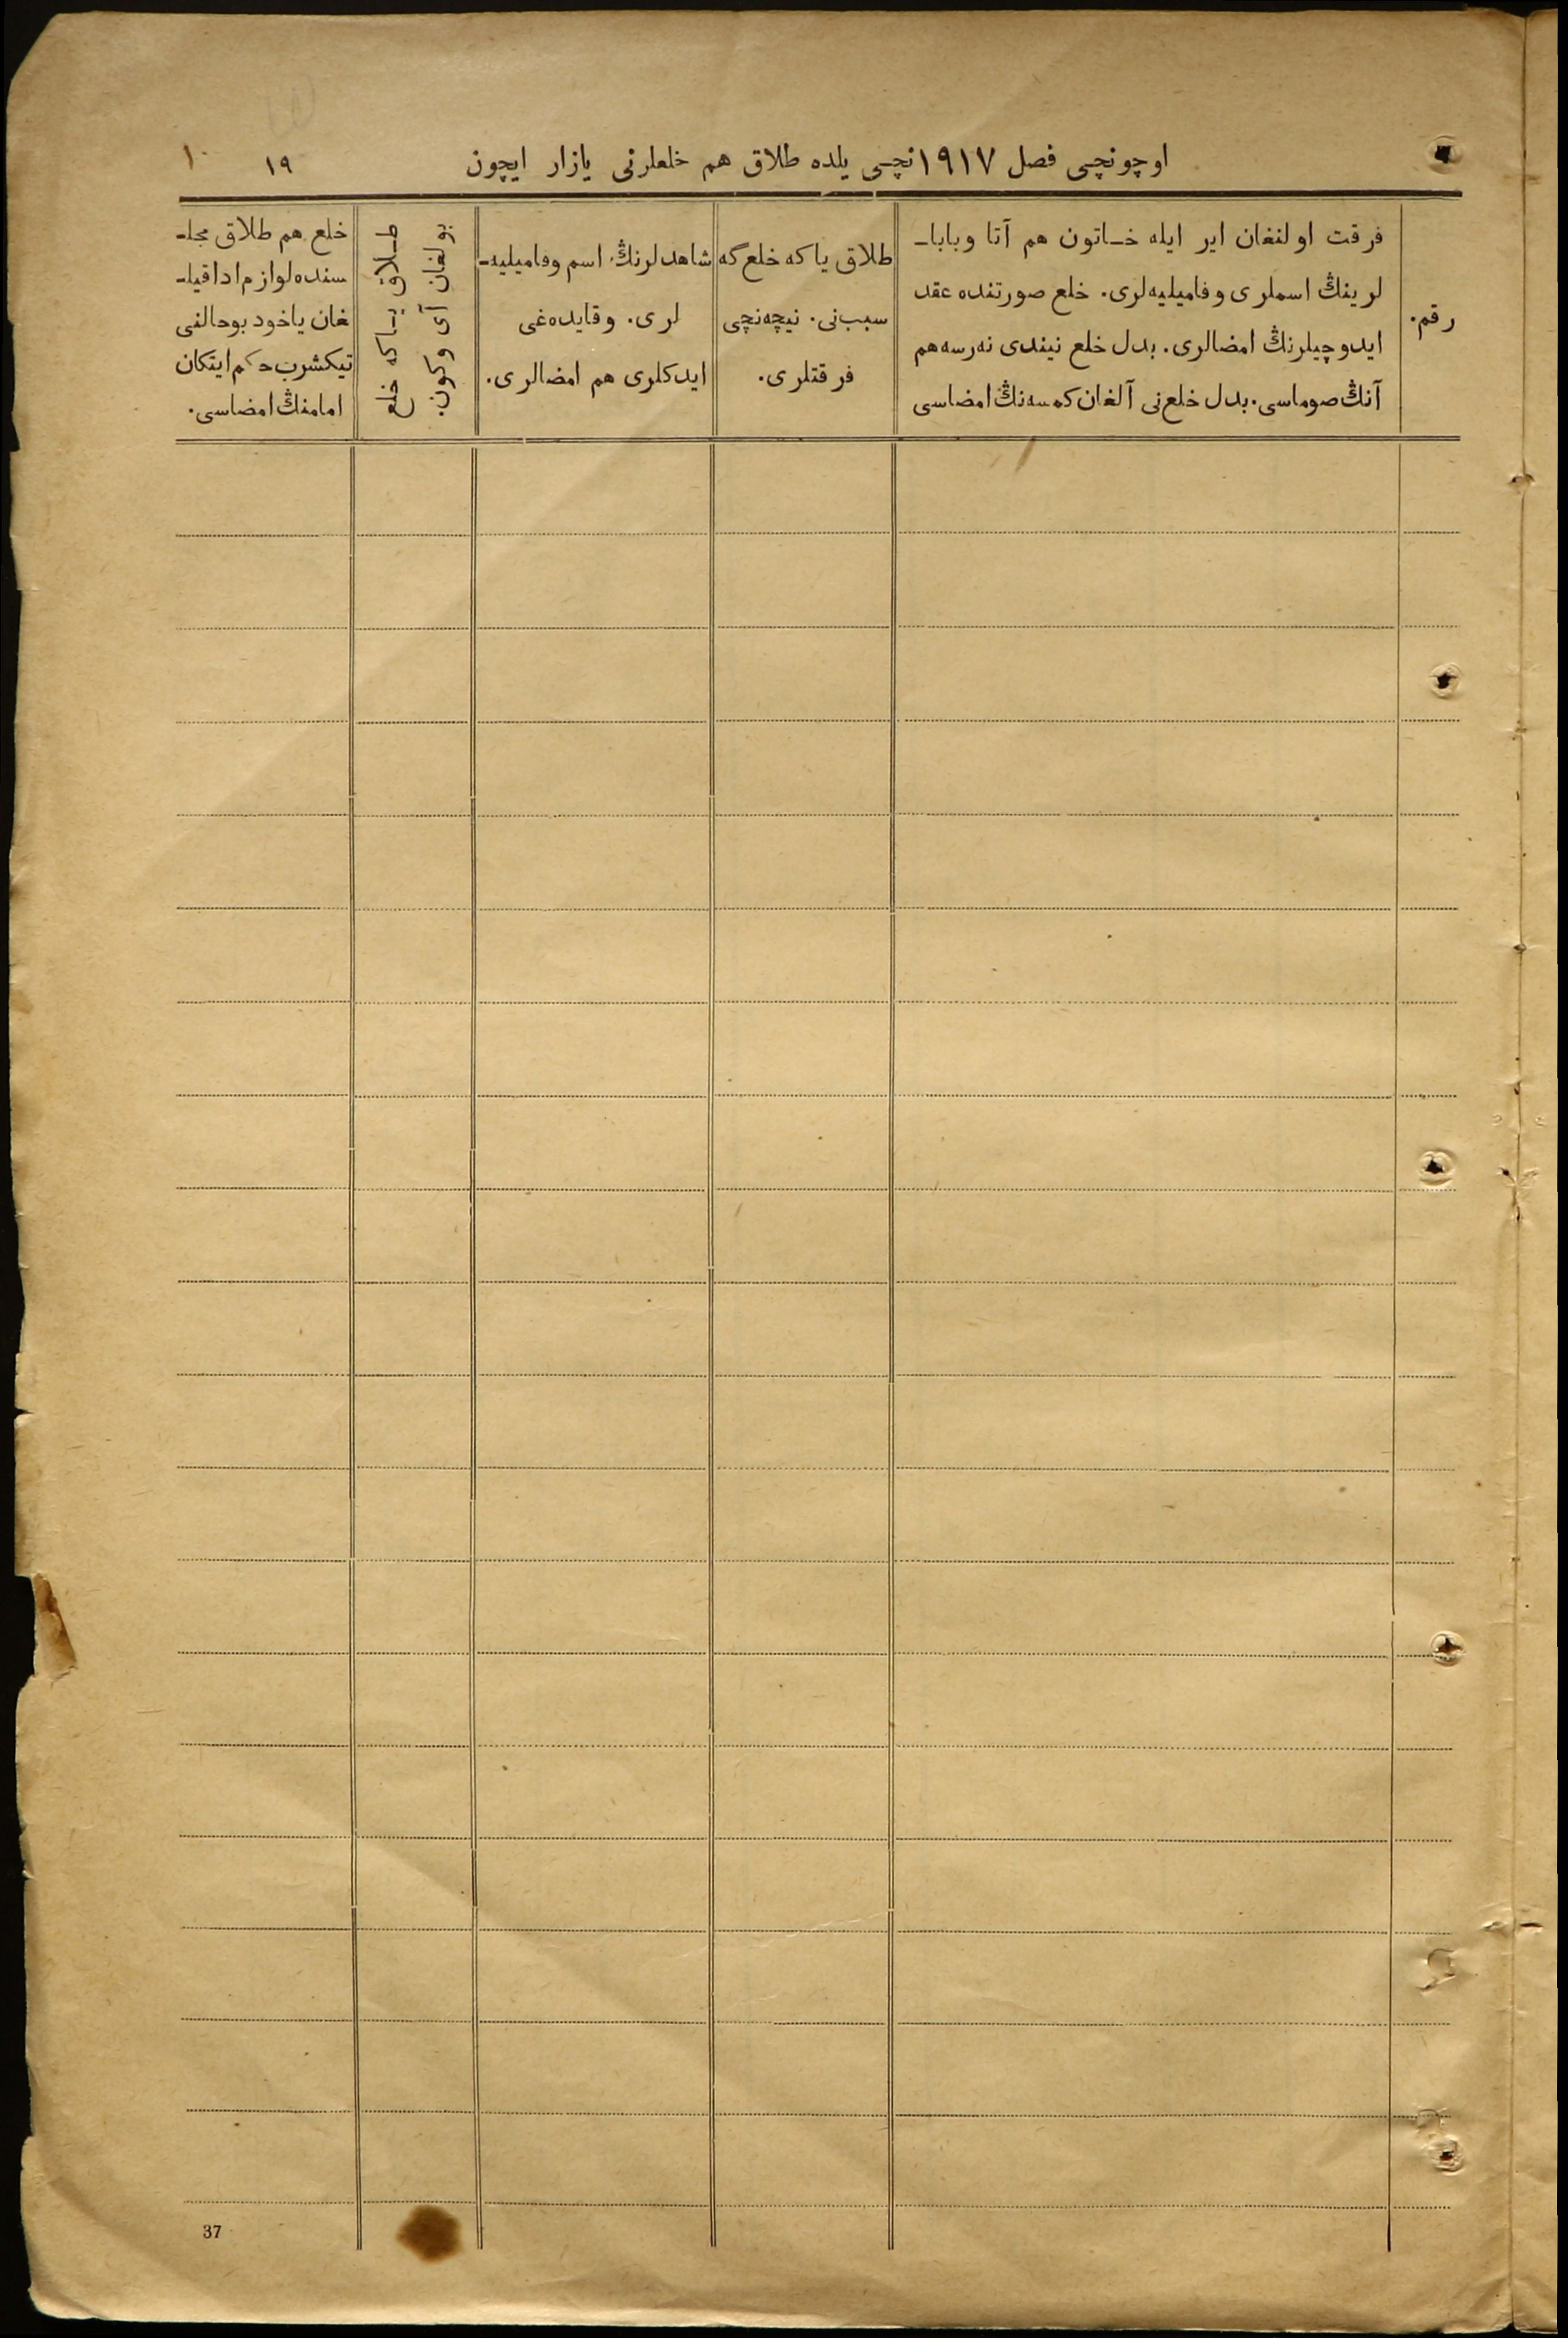 اوچونچی فصل ١٩١٧نچی یلده طلاق هم خلعلرنی یازار ایچون
١٩
١٠
رقم.
فرقت اولنغان ایر ایله خـاتون هم آتا وبابا-
لرینڭ اسملری وفامیلیه‌لری. خلع صورتنده عقد
ایدوچیلرنڭ امضالری. بدل خلع نیندی نه‌رسه هم
آنڭ صوماسی. بدل خلع‌نی آلغان كمسه‌نڭ امضاسی
طلاق یاكه خلع گه
سبب‌نی. نیچه‌نچی
فرقتلری.
شاهدلرنڭ اسم وفامیلیه-
لری. وقایده‌غی
ایدكلری هم امضالری.
طـلاق یـاكه خلع
بولغان آی وكون.
خلع هم طلاق مجلـ
سنده لوازم ادا قیلـ
غان یاخود بوحالنی
تیكشرب حكم ایتكان
امامنڭ امضاسی.
37